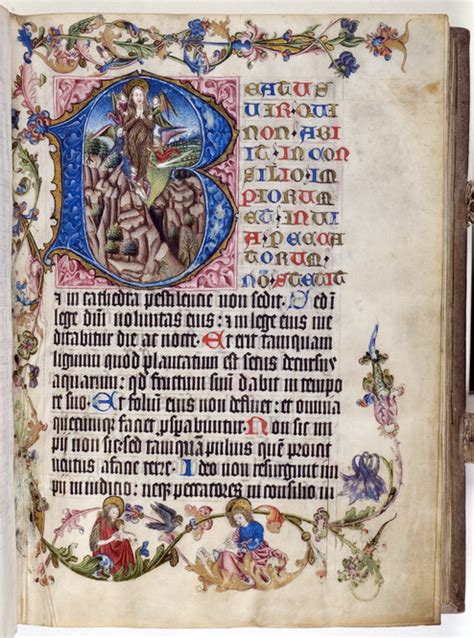 BEATUS
UIR QUI
NON ABI
IT IN CON
SILIO IM
PIORUM
ET IN UI
A PECCA
TORUM
NŌ STETIT
⁊ in cathedra pestilencie non sedit. Sed ī
lege dn̄i voluntas eius: ⁊ in lege eius me
ditabitur die ac nocte. Et erit tamquam
lignum quod plantatum est secus decursus
aquarum: qd fructum suū dabit in tempo
re suo. Et folium eius non defluet: et omnia
quecumque faciet pspabuntur. Non sic im
pij non sic: sed tamquā puluis quē proicit
ventus a facie terre. Ideo non resurgunt im
pij in iudicio: neqꝫ peccatores in consilio iu